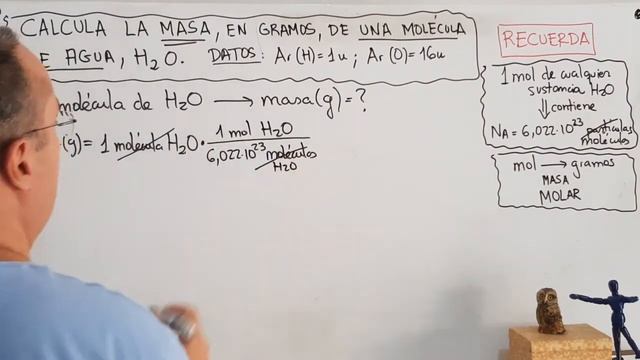 CALCULA LA MASA, EN GRAMOS, DE UNA MOLÉCULA
E AGUA, H₂O. DATOS: Ar(H)=1u; Ar(O)=16u
molécula de H₂O ⟶ masa(g)=?
(g)= 1 molécula H₂O · 1 mol H₂O
6,022·10²³ moléculas
H₂O
RECUERDA
1 mol de cualquier
sustancia H₂O
⇓ contiene
NA = 6,022·10²³ partículas
moléculas
mol ⟶ gramos
MASA
MOLAR